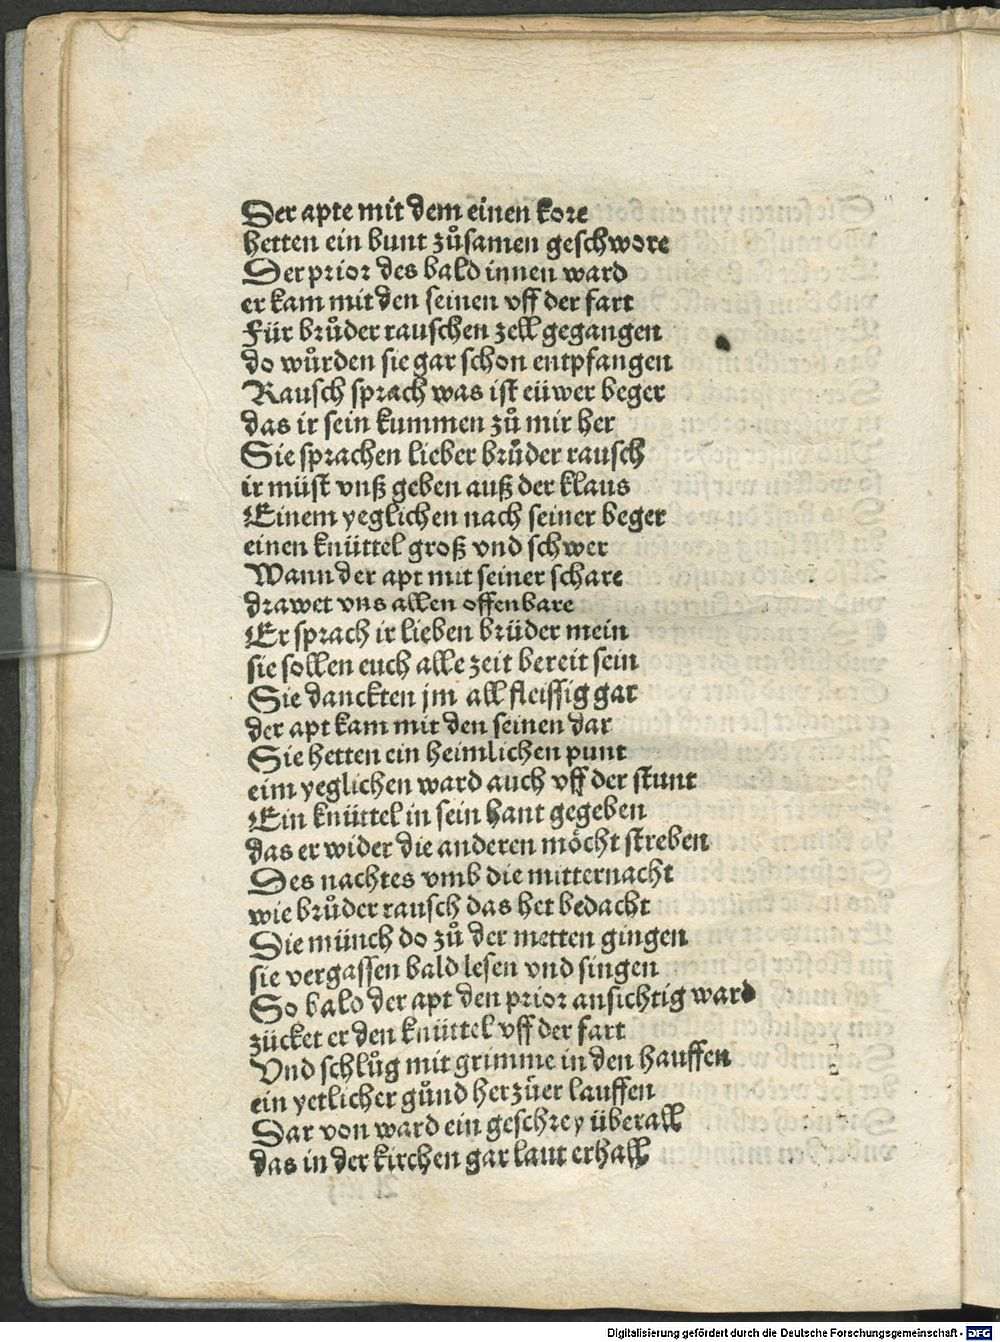 Der apte mit dem einen kore
hetten ein bunt zůsamen geschwore
Der prior des bald innen ward
er kam mit den seinen vff der fart
Für brůder rauschen zell gegangen
do wůrden sie gar schon entpfangen
Rausch sprach was ist eüwer beger
das ir sein kummen zů mir her
Sie sprachen lieber brůder rausch
ir müst vnß geben auß der klaus
Einem yeglichen nach seiner beger
einen knüttel groß vnd schwer
Wann der apt mit seiner schare
drawet vns allen offenbare
Er sprach ir lieben brüder mein
sie sollen euch alle zeit bereit sein
Sie danckten jm all fleissig gar
der apt kam mit den seinen dar
Sie hetten ein heimlichen punt
eim yeglichen ward auch vff der stunt
Ein knüttel in sein hant gegeben
das er wider die anderen möcht streben
Des nachtes vmb die mitternacht
wie brůder rausch das het bedacht
Die münch do zů der metten gingen
sie vergassen bald lesen vnd singen
So bald der apt den prior ansichtig ward
zücket er den knüttel vff der fart
Vnd schlůg mit grimme in den hauffen
ein yetlicher gůnd herzůer lauffen
Dar von ward ein geschrey überall
das in der kirchen gar laut erhall
Digitalisierung gefördert durch die Deutsche Forschungsgemeinschaft - DFG